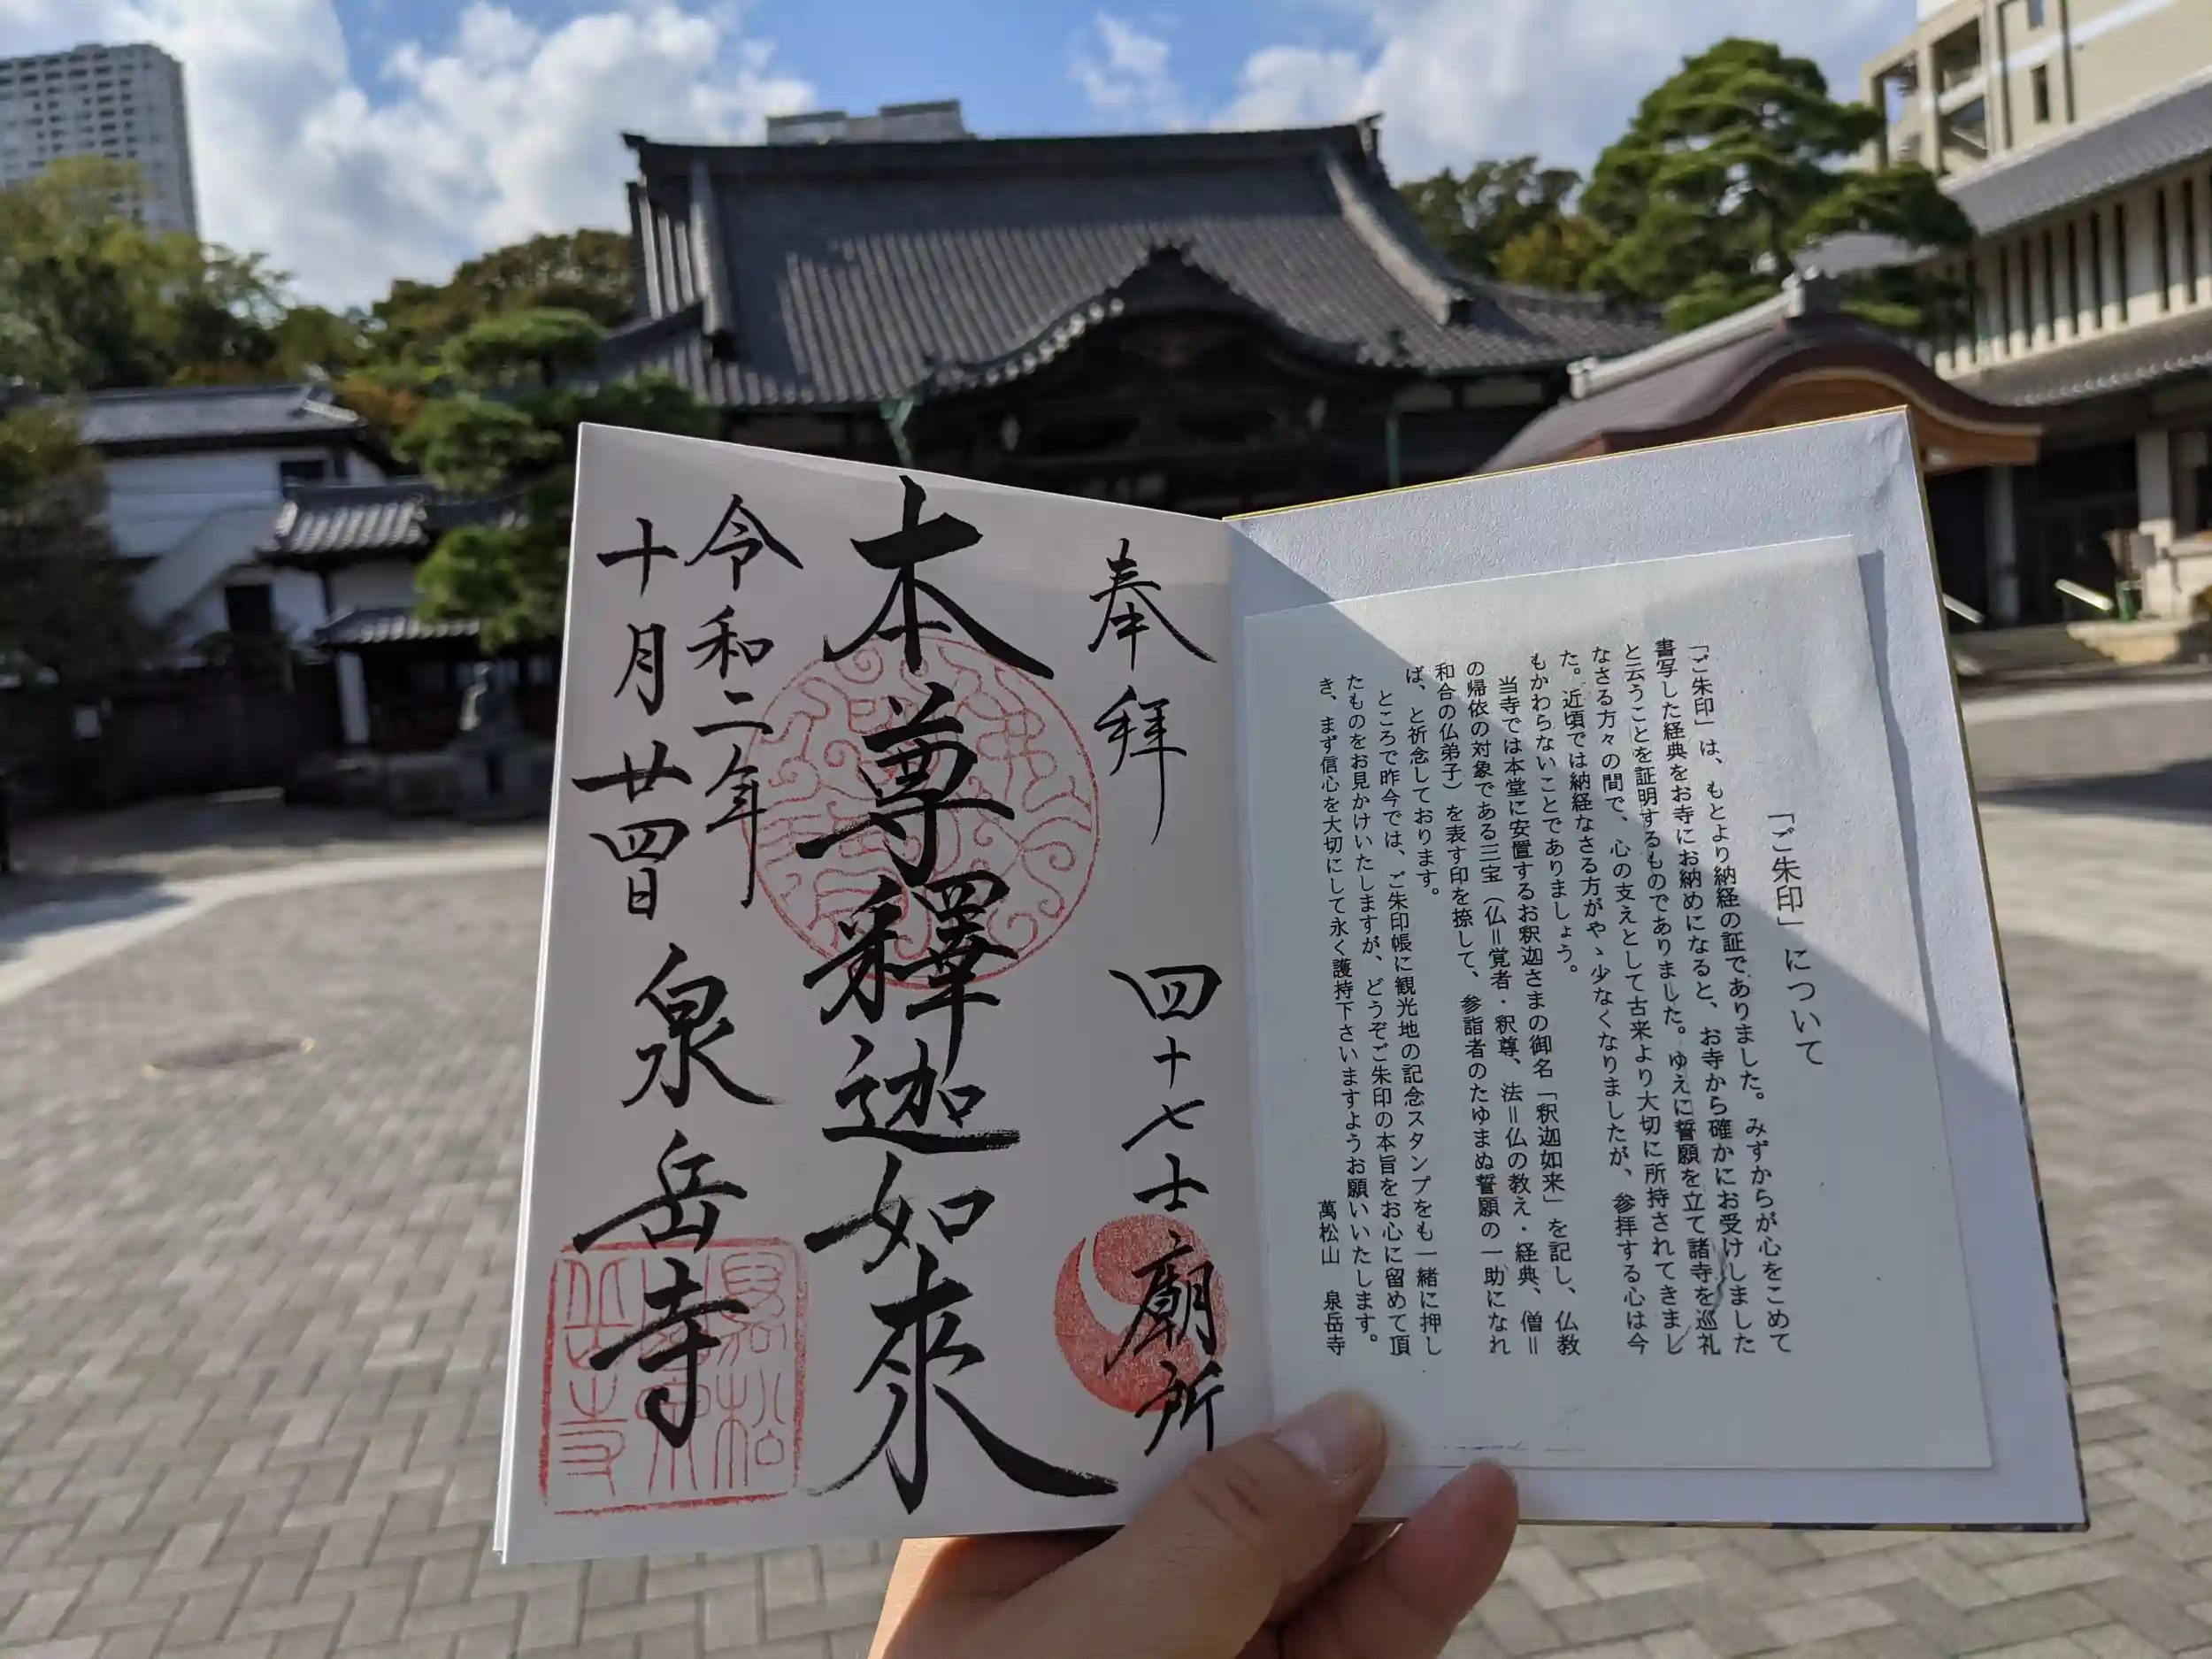 「ご朱印」について
「ご朱印」は、もとより納経の証でありました。みずからが心をこめて
書写した経典をお寺にお納めになると、お寺から確かにお受けしました
と云うことを証明するものでありました。ゆえに誓願を立て諸寺を巡礼
なさる方々の間で、心の支えとして古来より大切に所持されてきまし
た。近頃では納経なさる方がやゝ少なくなりましたが、参拝する心は今
もかわらないことでありましょう。
当寺では本堂に安置するお釈迦さまの御名「釈迦如来」を記し、仏教
の帰依の対象である三宝（仏＝覚者・釈尊、法＝仏の教え・経典、僧＝
和合の仏弟子）を表す印を捺して、参詣者のたゆまぬ誓願の一助になれ
ば、と祈念しております。
ところで昨今では、ご朱印帳に観光地の記念スタンプをも一緒に押し
たものをお見かけいたしますが、どうぞご朱印の本旨をお心に留めて頂
き、まず信心を大切にして永く護持下さいますようお願いいたします。
萬松山　泉岳寺
奉拝　四十七士廟所
本尊釋迦如來
令和二年
十月廿四日　泉岳寺